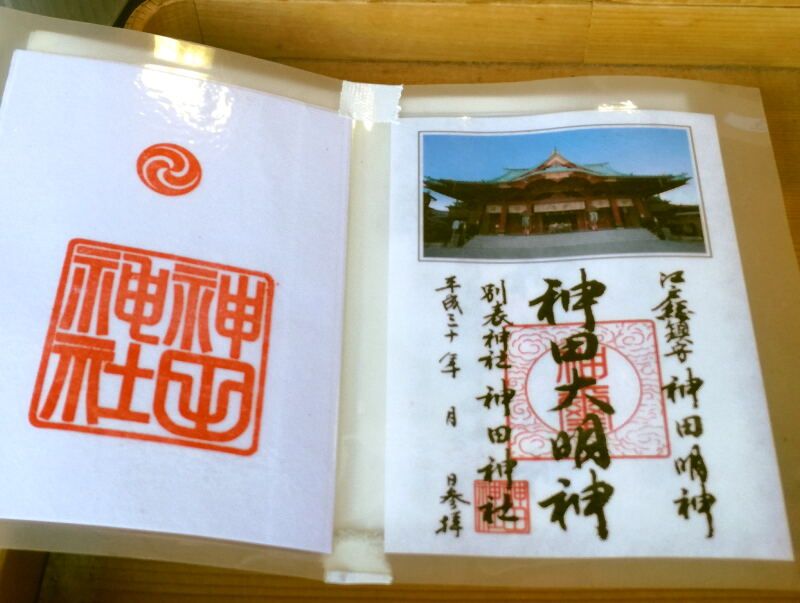 神田
神社
江戸総鎮守 神田明神
神田大明神
別表神社 神田神社
平成三十年 月 日参拝
神田
神社